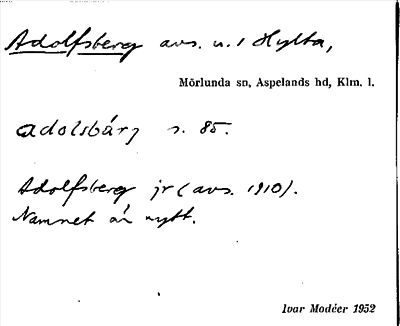 Adolfsberg avs. u. 1 Hylta,
Mörlunda sn, Aspelands hd, Klm. l.
adolsbárj s. 85.
Adolfsberg jr (avs. 1910).
Namnet är nytt.
Ivar Modéer 1952